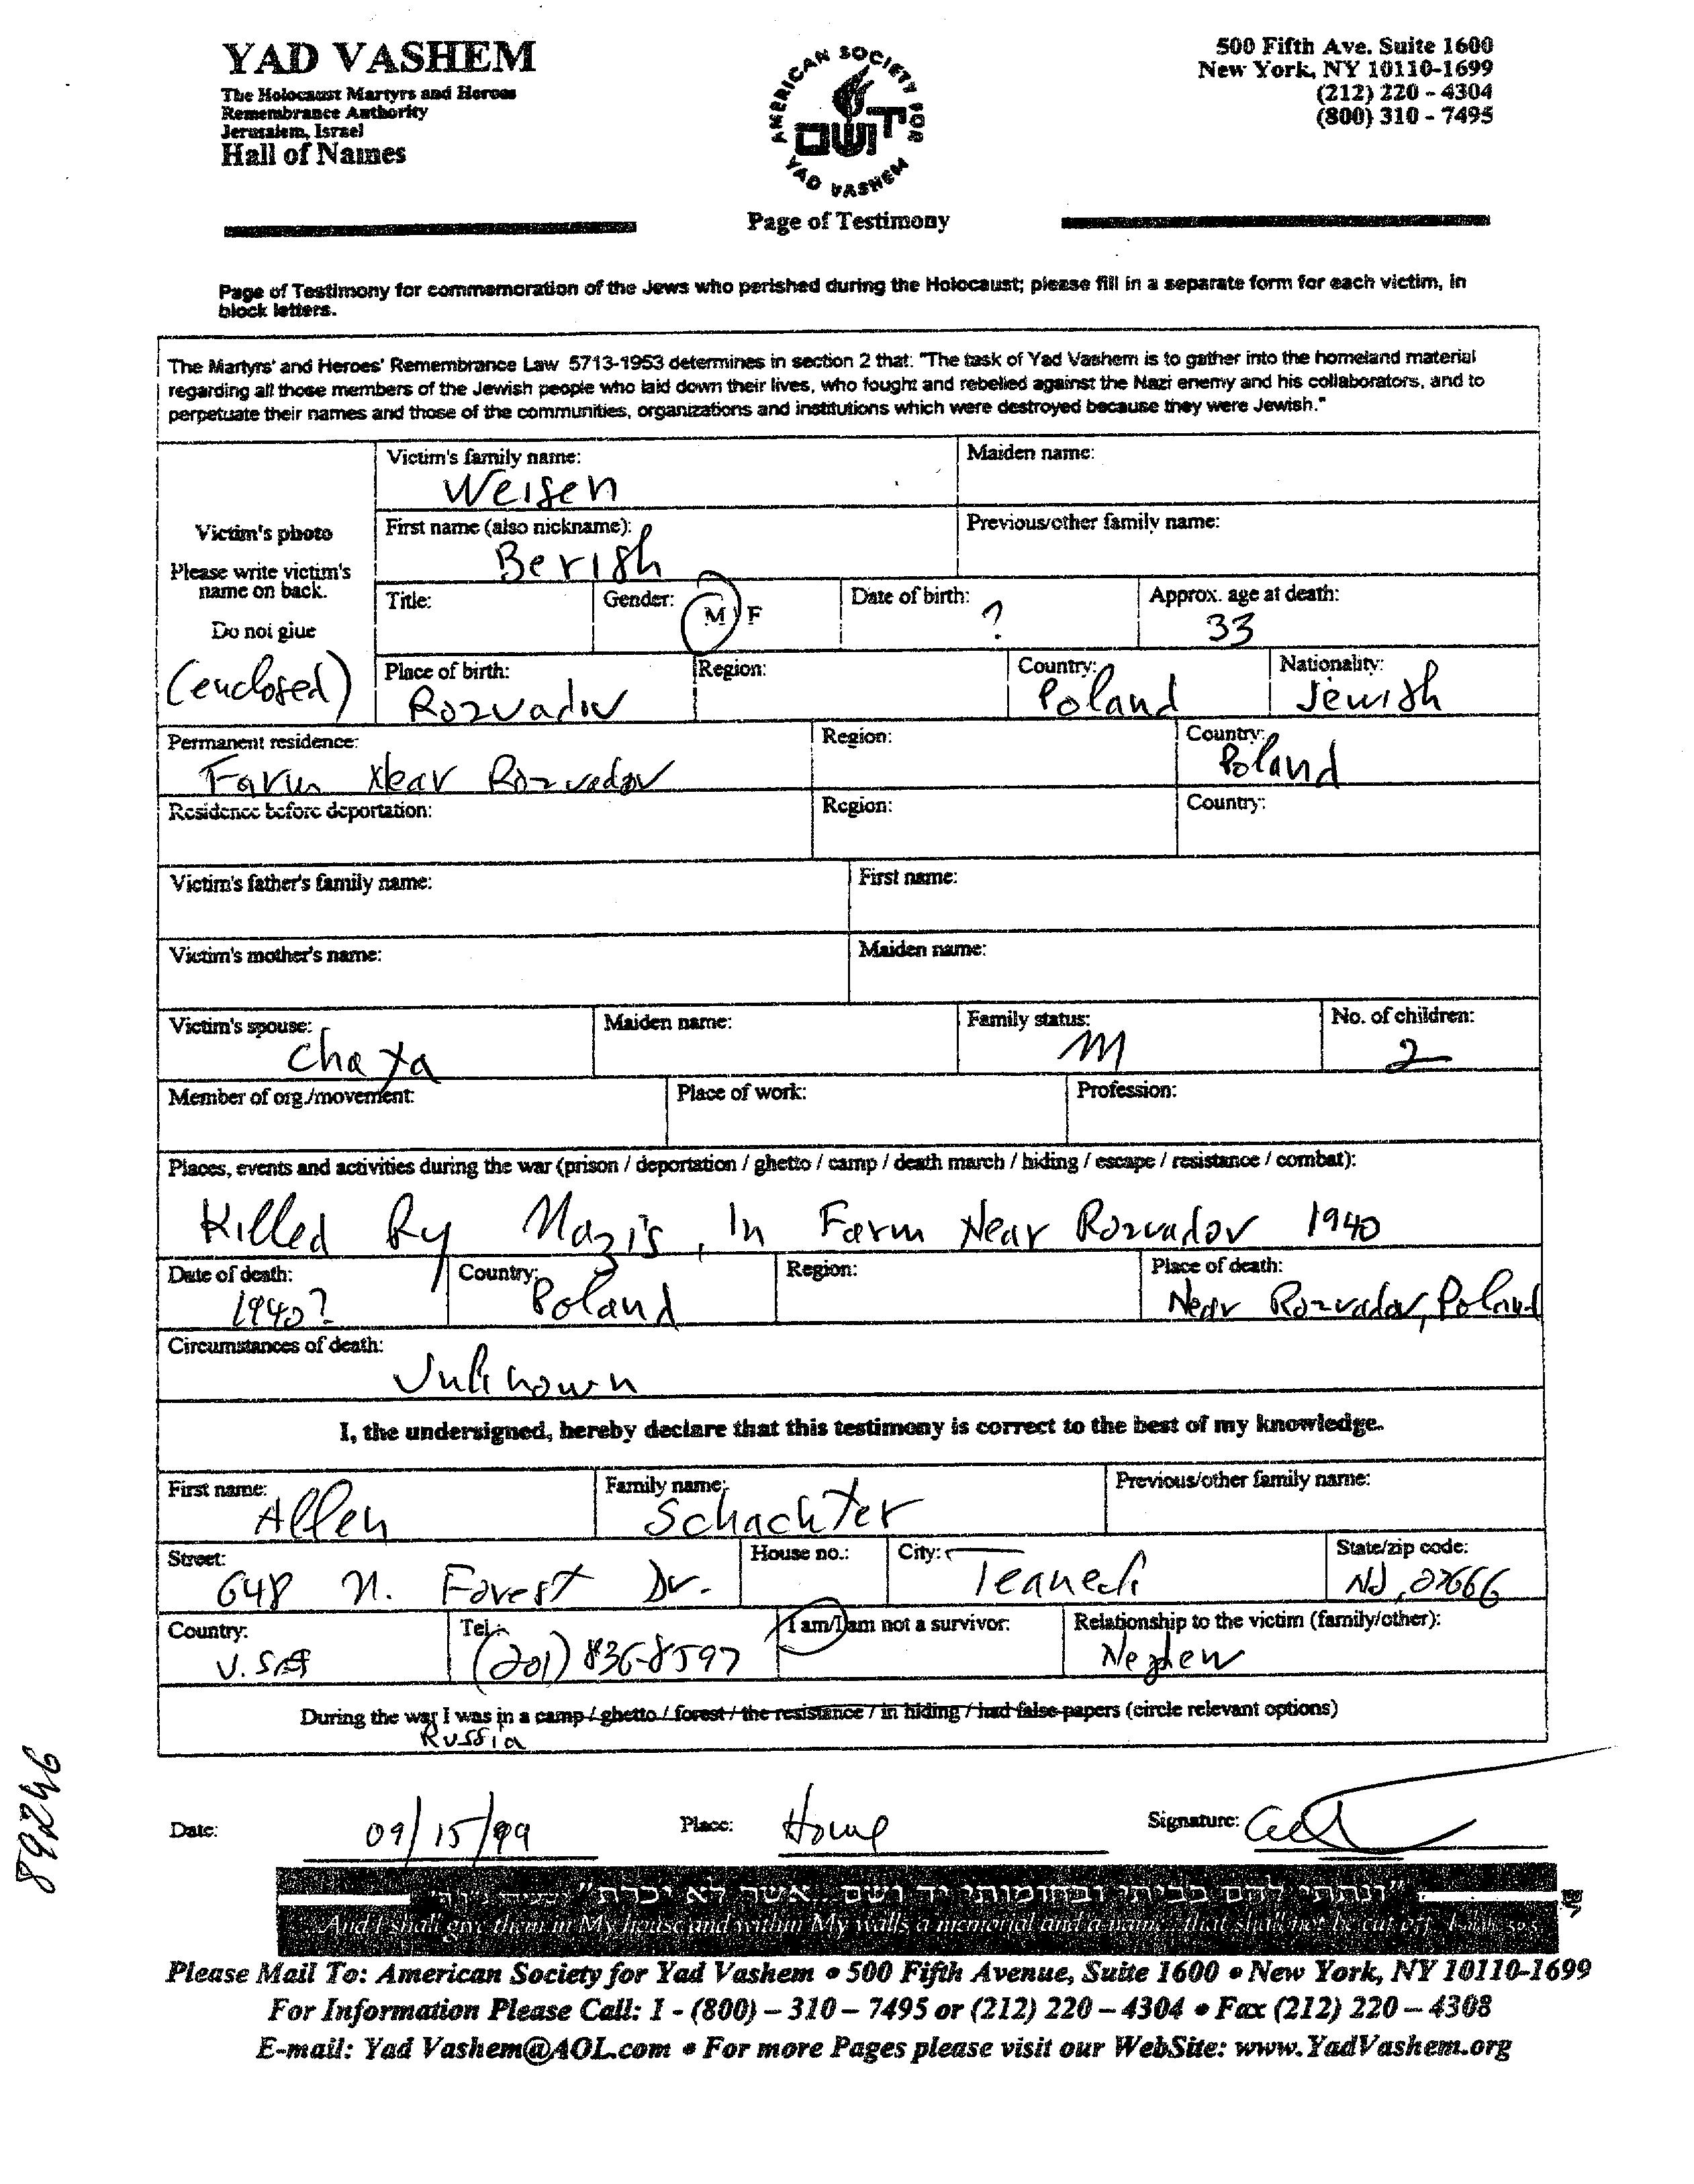 YAD VASHEM
The Holocaust Martyrs and Heroes
Remembrance Authority
Jerusalem, Israel
Hall of Names
AMERICAN SOCIETY FOR
YAD VASHEM
יד ושם
Page of Testimony
500 Fifth Ave. Suite 1600
New York, NY 10110-1699
(212) 220 - 4304
(800) 310 - 7495
Page of Testimony for commemoration of the Jews who perished during the Holocaust; please fill in a separate form for each victim, in
block letters.
The Martyrs' and Heroes' Remembrance Law 5713-1953 determines in section 2 that: "The task of Yad Vashem is to gather into the homeland material
regarding all those members of the Jewish people who laid down their lives, who fought and rebelled against the Nazi enemy and his collaborators, and to
perpetuate their names and those of the communities, organizations and institutions which were destroyed because they were Jewish."
Victim's photo
Please write victim's
name on back.
Do not glue
(enclosed)
Victim's family name: Maiden name:
Weisen
First name (also nickname): Previous/other family name:
Berish
Title: Gender: M F Date of birth: ? Approx. age at death: 33
Place of birth: Region: Country: Nationality:
Rozvadov Poland Jewish
Permanent residence: Region: Country:
Farm Near Rozvadov Poland
Residence before deportation: Region: Country:
Victim's father's family name: First name:
Victim's mother's name: Maiden name:
Victim's spouse: Maiden name: Family status: No. of children:
Chaya M 2
Member of org./movement: Place of work: Profession:
Places, events and activities during the war (prison / deportation / ghetto / camp / death march / hiding / escape / resistance / combat):
Killed By Nazi's, In Farm Near Rozvadov 1940
Date of death: Country: Region: Place of death:
1940? Poland Near Rozvadov, Poland
Circumstances of death:
Unknown
I, the undersigned, hereby declare that this testimony is correct to the best of my knowledge.
First name: Family name: Previous/other family name:
Allen Schachter
Street: House no.: City: State/zip code:
648 N. Forest Dr. Teaneck NJ, 07666
Country: Tel.: I am/I am not a survivor: Relationship to the victim (family/other):
U.SA (201) 836-8597 Nephew
During the war I was in a camp / ghetto / forest / the resistance / in hiding / had false papers (circle relevant options)
Russia
89246
Date: 09/15/99 Place: Home Signature:
"ונתתי להם בביתי ובחומותי יד ושם... אשר לא יכרת"
And I shall give them in My house and within My walls a memorial and a name... that shall not be cut off. Isaiah 56:5
Please Mail To: American Society for Yad Vashem • 500 Fifth Avenue, Suite 1600 • New York, NY 10110-1699
For Information Please Call: 1 - (800) – 310 – 7495 or (212) 220 – 4304 • Fax (212) 220 – 4308
E-mail: Yad Vashem@AOL.com • For more Pages please visit our WebSite: www.YadVashem.org